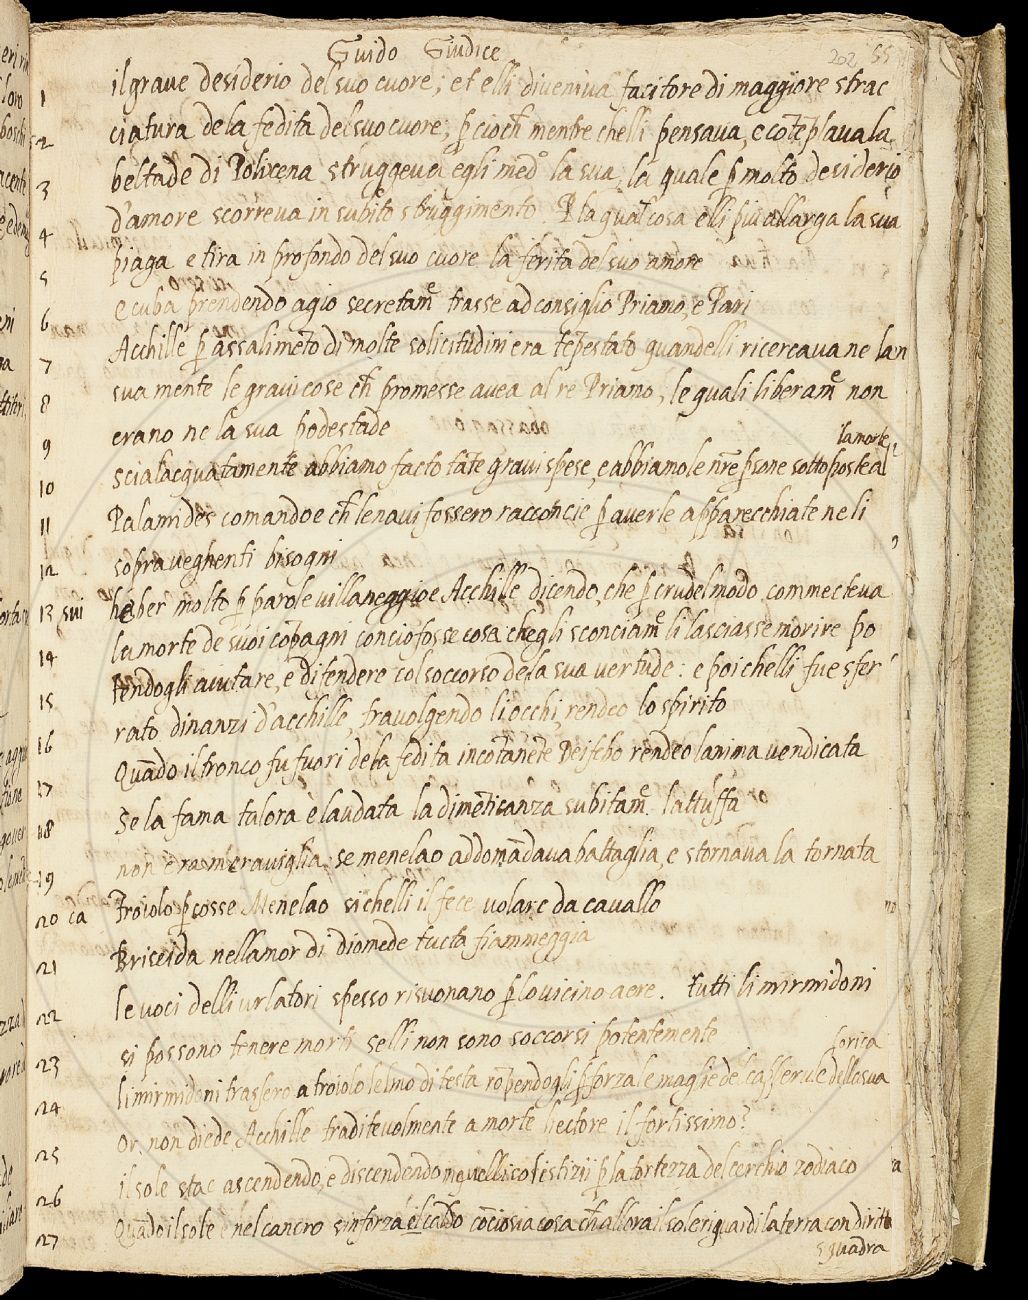 Guido Giudice
202 55
1 il grave desiderio del suo cuore; et elli diveniva facitore di maggiore strac
2 ciatura de la fedita del suo cuore; p̄ cioch̄ mentre chelli pensava, e cōtēplava la
3 beltade di Polixena struggeva egli med° la sua, la quale p̄ molto desiderio
4 d'amore scorreva in subito struggimento. P la qual cosa elli piu allarga la sua
5 piaga e tira in profondo del suo cuore la ferita del suo amore
6 Ecuba prendendo agio secretam̄e trasse ad consiglio Priamo, e Pari
7 Acchille p̄ assalimēto di molte solicitudini era tēpestato quandelli ricercava ne lan
8 sua mente le gravi cose ch̄ promesse avea al re Priamo, le quali liberam̄e non
9 erano ne la sua podestade
la morte
10 scialacquatamente abbiamo facto tāte gravi spese, e abbiamo le nr̄e p̄sone sottoposte al
11 Palamides comandoe ch̄ le navi fossero racconcie p̄ averle apparecchiate ne li
12 sopravegnenti bisogni
13 sui heber molto p̄ parole villaneggioe Acchille dicendo, che p̄ crudel modo commecteva
14 la morte de suoi cōpagni conciofosse cosa chegli sconciam̄e li lasciasse morire po
15 tendogli aiutare, e difendere col soccorso de la sua vertude: e poi chelli fue sfer
16 rato dinanzi d'acchille, travolgendo li occhi, rendeo lo spirito
17 Quādo il tronco fu fuori de la fedita incōtanēte Deifebo rendeo lanima vendicata
18 Se la fama talora è laudata la dimēticanza subitam̄e lattuffa
19 non era meraviglia se menelao addomādava battaglia, e stornava la tornata
20 ca Troiolo p̄cosse Menelao sichelli il fece volare da cavallo
21 Briseida nellamor di diomede tucta fiammeggia
22 le voci delli urlatori spesso risuonano p̄ lo vicino aere. Tutti li mirmidoni
23 si possono tenere morti selli non sono soccorsi potentemente
lorica
24 li mirmidoni trassero a troiolo lelmo di testa rōpendogli p̄ forza le maglie del cassero e della sua
25 Or non diede Acchille traditevolmente a morte hectore il fortissimo?
26 il sole stae ascendendo, e discendendo in quelli solistizii p̄ la tortezza del cerchio zodiaco
27 Quādo il sole è nel cancro sinforza il caldo cōciosia cosa ch̄ allora il sole riguardi la terra con diritta
squadra